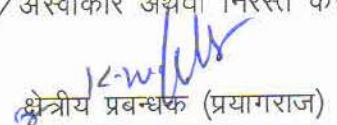 / अस्वीकार अथवा निरस्त
क्षेत्रीय प्रबन्धक (प्रयागराज)